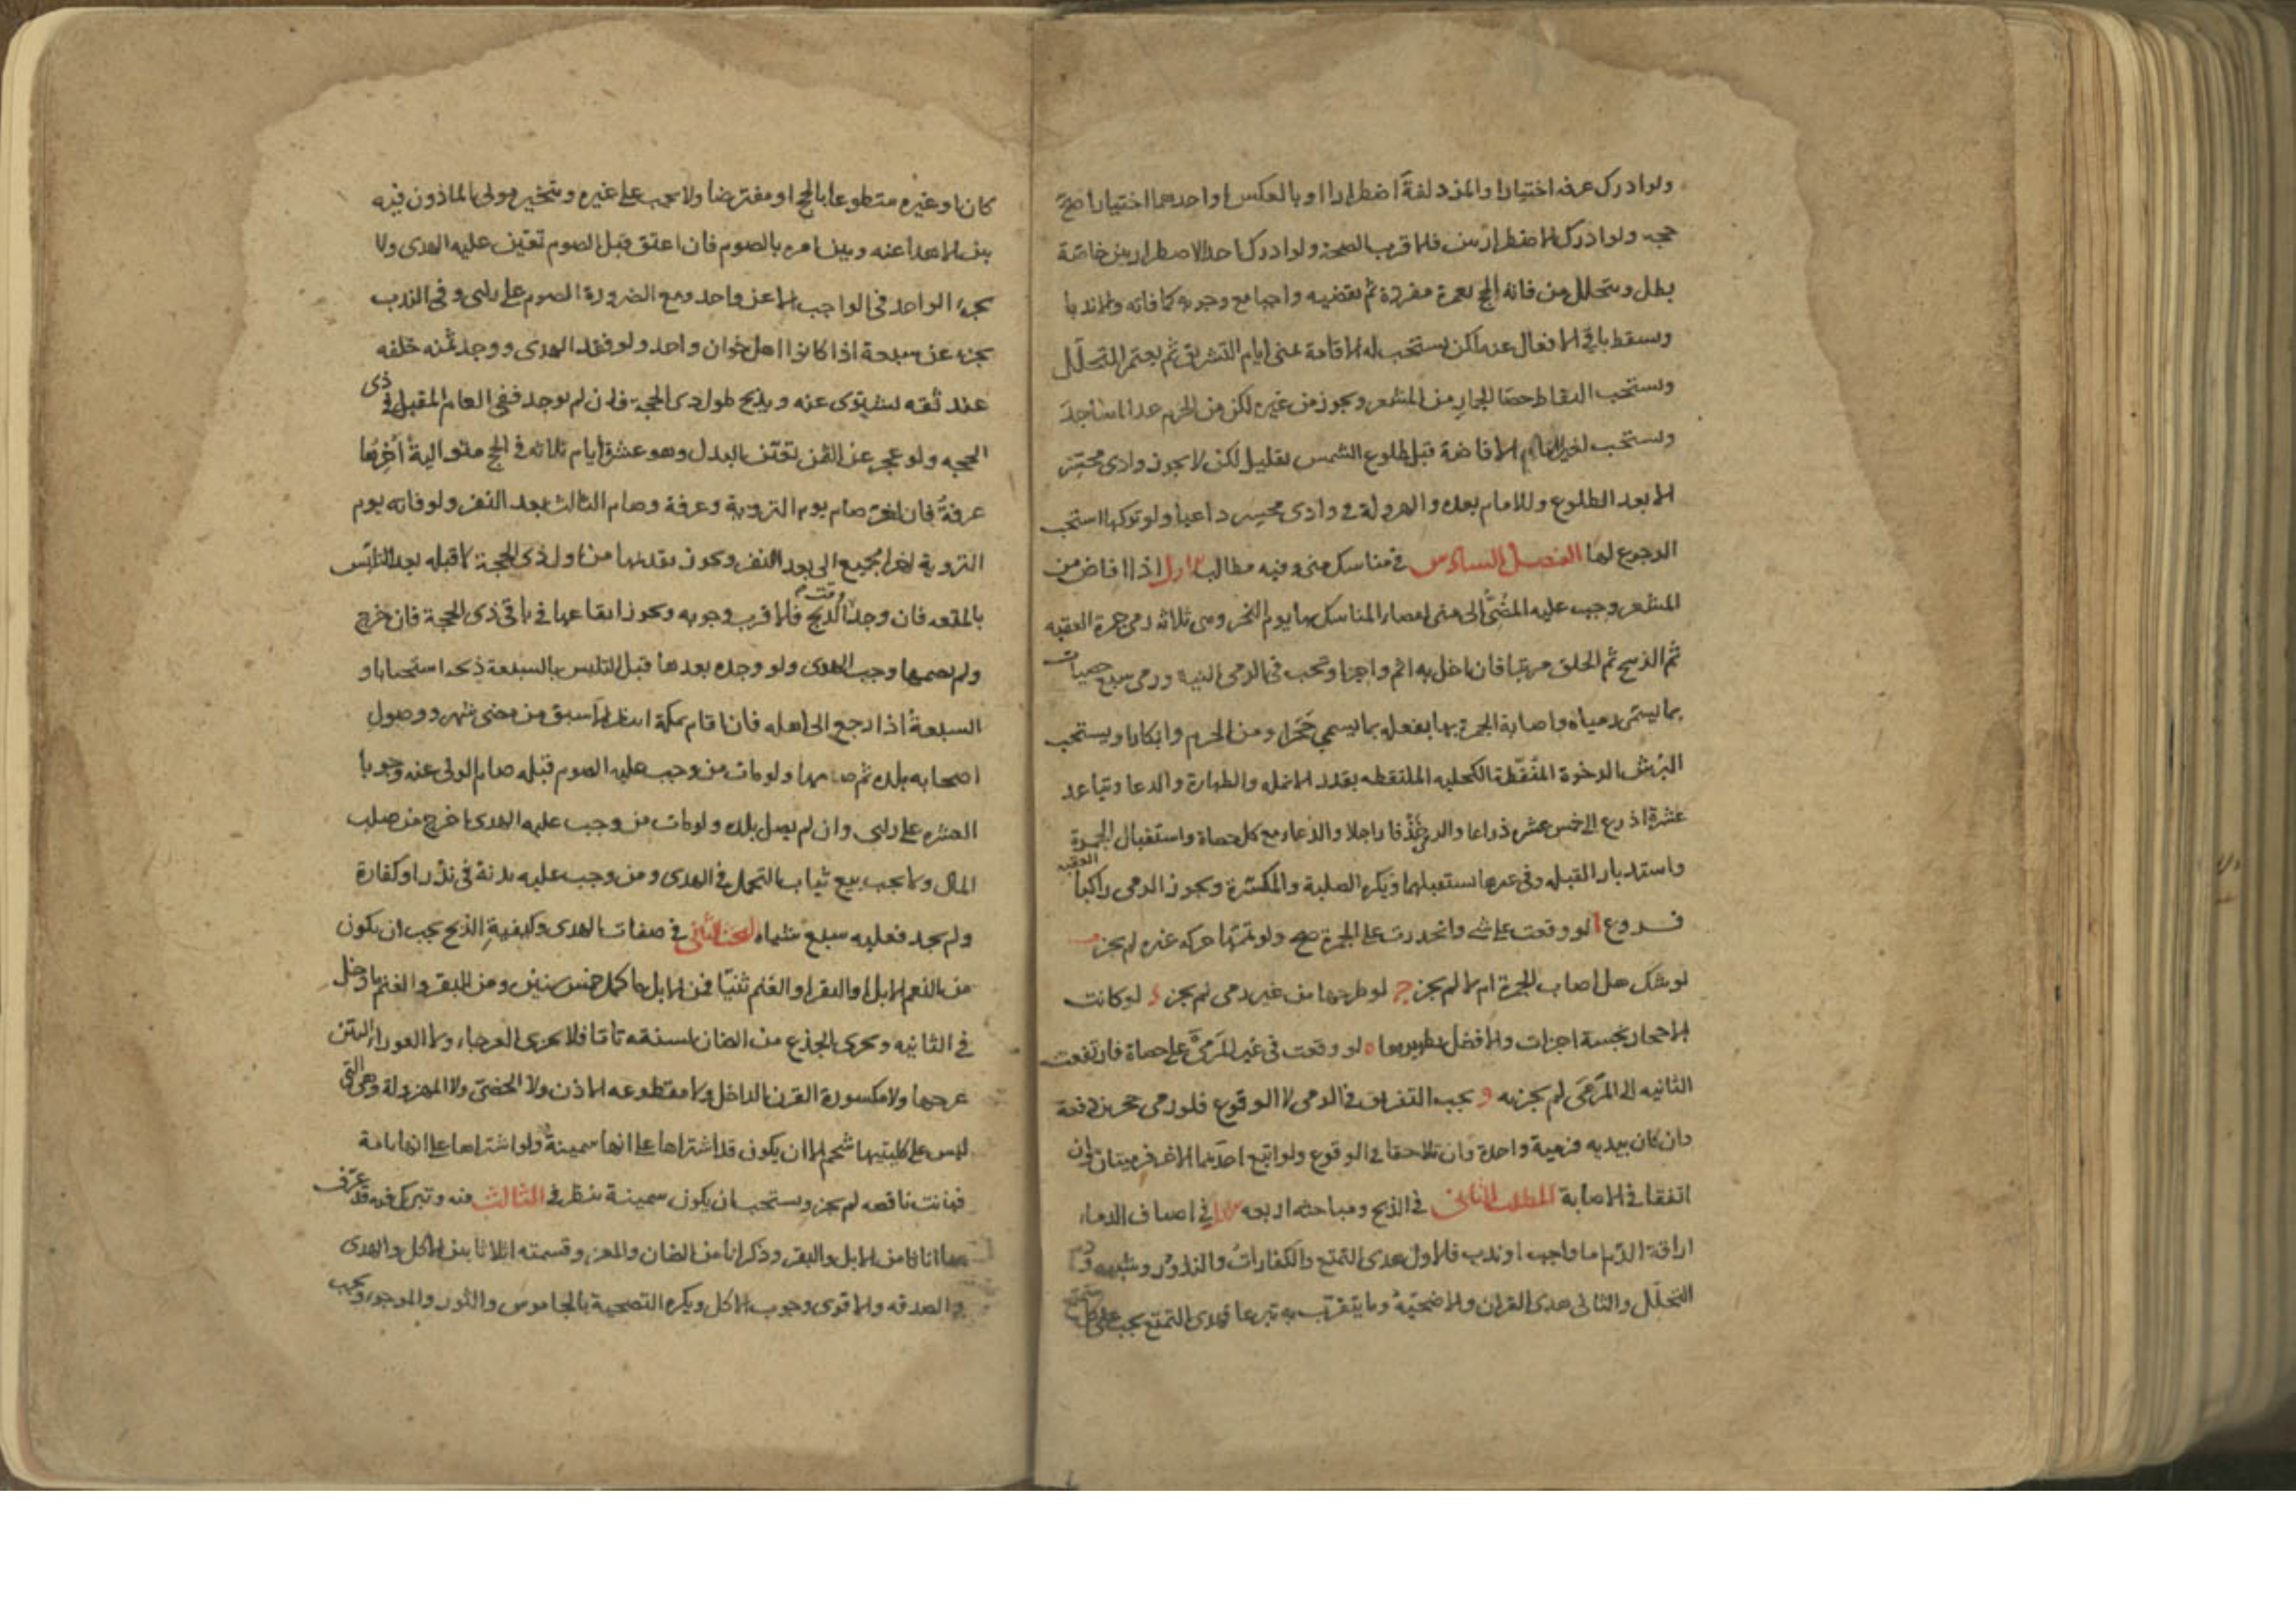 ولو ادرك عرفه اختيارا والمزدلفة اضطرارا او بالعكس او احدهما اختيارا صح
حجه ولو ادرك الاضطراريين فالاقرب الصحة ولو ادرك احد الاضطراريين خاصة
بطل ويتحلل من فاته الحج بعمرة مفردة ثم يقضيه واجبا مع وجوبه كما فاته والا ندبا
ويسقط باقي الافعال عنه لكن يستحب له الاقامة بمنى ايام التشريق ثم يعتمر للتحلل
ويستحب التقاط حصا الجمار من المشعر ويجوز من غيره لكن من الحرم عدا المساجد
ويستحب لغير الامام الافاضة قبل طلوع الشمس بقليل لكن لا يجوز وادى محسر
الا بعد الطلوع وللامام بعده والهرولة فى وادى محسر داعيا ولو تركها استحب
الرجوع لها الفصل السادس فى مناسك منى وفيه مطالب الاول اذا افاض من
المشعر وجب عليه المضىّ الى منى لقضاء المناسك بها يوم النحر وهى ثلاثه رمى جمرة العقبه
ثم الذبح ثم الحلق مرتبا فان اخل به اثم واجزا ويجب فى الرمى النية ورمى سبع حصيات
بما يسمى رمياه واصابة الجمرة بها بفعله بما يسمي حجرا ومن الحرم وابكارا ويستحب
البرش الرخوة المنقّطة الكحليه الملتقطه بقدر الانمله والطهارة والدعا وتباعد
عشرة اذرع الى خمس عشر ذراعا والرمى خذفا راجلا والدعاء مع كل حصاة واستقبال الجمرة
واستدبار القبله وفى غيرها يستقبلهما ويكره الصلبة والمكسّرة ويجوز الرمى راكبا العقبه
فروع ا لو وقعت على شى وانحدرت على الجمرة صح ولو تممّها حركه غيره لم يجز ب
لو شك هل اصاب الجمرة ام لا لم يجز ج لو طرحها من غير رمى لم يجز د لو كانت
الاحجار نجسة اجزات والافضل تطهيرها ه لو وقعت فى غير المرمى على حصاة فارتفعت
الثانيه الى المرمى لم يجزه و يجب التفريق فى الرمى لا الوقوع فلو رمى حجرين دفعة
وان كان بيديه فرمية واحدة وان تلاحقا فى الوقوع ولو اتبع احدهما الاخر فرميتان وان
اتفقا فى الاصابة المطلب الثانى فى الذبح ومباحثه اربعه الاول فى اصناف الدماء
اراقة الدم اما واجب او ندب فالاول هدى التمتع والكفارات والنذور وشبهه ودم
التحلل والثانى هدى القران والاضحيّة وما يتقرّب به تبرعا فهدى التمتع يجب على كل متمتع
كان او غيره متطوعا بالحج او مفترضا ولا يجب على غيره ويتخير مولى الماذون فيه
بين الاهداء عنه وبين امره بالصوم فان اعتق قبل الصوم تعيّن عليه الهدى ولا
يجزء الواحد فى الواجب الا عن واحد ومع الضرورة الصوم على راى وفى الندب
يجزى عن سبعة اذا كانوا اهل خوان واحد ولو فقد الهدى ووجد ثمنه خلفه
عند ثقه ليشترى عنه ويذبح طول ذى الحجه فان لم يوجد ففى العام المقبل فى ذى
الحجه ولو عجز عن الثمن تعيّن البدل وهو عشرة ايام ثلاثه فى الحج متوالية آخرها
عرفة فان اخّر صام يوم التروية وعرفة وصام الثالث بعد النفر ولو فاته يوم
التروية اخر الجميع الى بعد النفر ويجوز تقديمها من اول ذى الحجة لا قبله بعد التلبّس
بالمتعه فان وجد وقت الذبح فالاقرب وجوبه ويجوز ايقاعها فى باقى ذى الحجة فان خرج
ولم يصمها وجب الهدى ولو وجده بعدها قبل التلبس بالسبعة ذبحه استحبابا و
السبعة اذا رجع الى اهله فان اقام بمكة انتظر الاسبق من مضى شهر ووصول
اصحابه بلده ثم صامها ولو مات من وجب عليه الصوم قبله صام الولى عنه وجوبا
العشره على راى وان لم يصل بلده ولو مات من وجب عليه الهدى اخرج من صلب
المال ولا يجب بيع ثياب التجمل فى الهدى ومن وجب عليه بدنة فى نذر او كفارة
ولم يجد فعليه سبع شياه البحث الثانى فى صفات الهدى وكيفية الذبح يجب ان يكون
من النعم الابل او البقر او الغنم ثنيّا فمن الابل ما كمل خمس سنين ومن البقر والغنم ما دخل
فى الثانيه ويجزى الجذع من الضان لسنته تامّا فلا يجزى العرجاء ولا العوراء البيّن
عرجها ولا مكسورة القرن الداخل ولا مقطوعه الاذن ولا الخصىّ ولا المهزولة وهى التى
ليس على كليتيها شحم الا ان يكون قد اشتراها على انها سمينة ولو اشتراها على انها تامة
فبانت ناقصه لم يجز ويستحب ان يكون سمينة تنظر فى الثالث منه وتبرك فيه قد عرّف
بها اناثا من الابل والبقر وذكرانا من الضان والمعز وقسمته اثلاثا بين الاكل والهدى
والصدقه والاقوى وجوب الاكل ويكره التضحية بالجاموس والثور والموجوء ويجب